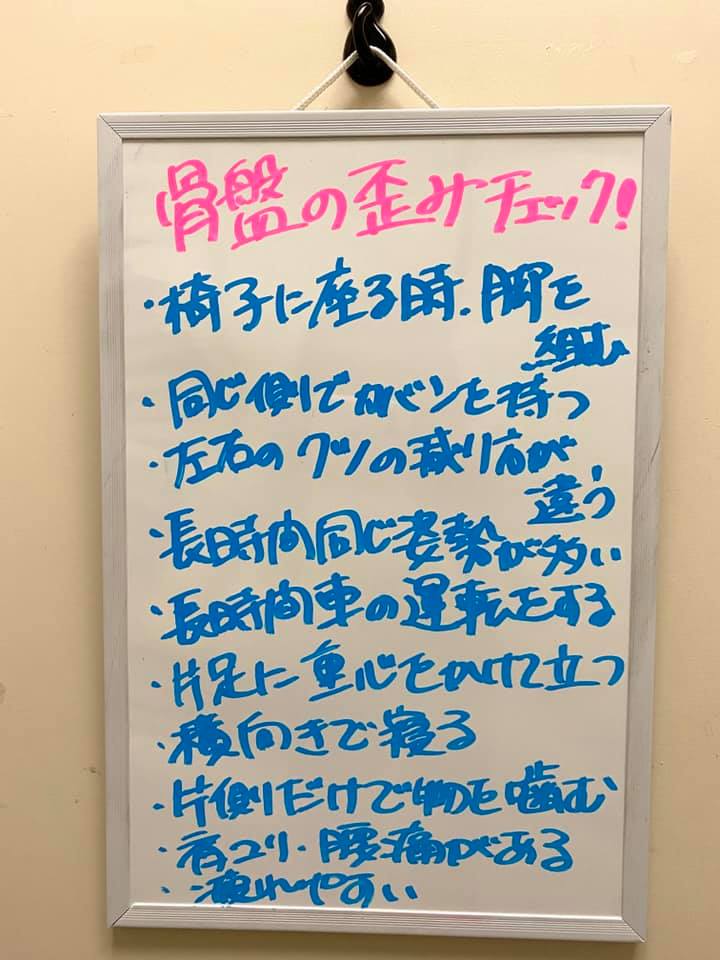 骨盤の歪みチェック!
・椅子に座る時、脚を
組む
・同じ側でカバンを持つ
・左右のクツの減り方が
違う
・長時間同じ姿勢が多い
・長時間車の運転をする
・片足に重心をかけて立つ
・横向きで寝る
・片側だけで物を噛む
・肩コリ・腰痛がある
・疲れやすい